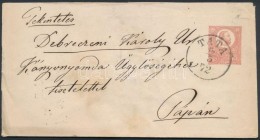 Tekintetes
Debreczeni Károly Ur
Könyvnyomda Ügyvezetőjének
tisztelettel
Pápán
TATA
72